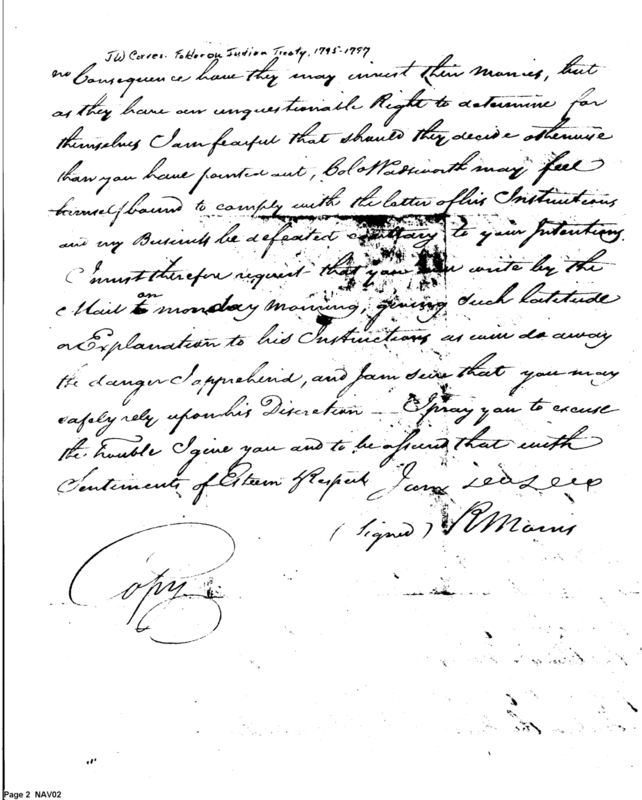 JW Corres. Folder on Indian Treaty, 1795-1797
no Consequence how they may invest their Monies, but
as they have an unquestionable Right to determine for
themselves I am fearful that should they decide otherwise
than you have pointed out, Colo Wadsworth may feel
himself bound to comply with the letter of his Instructions
and my Business be defeated contrary to your Intentions.
I must therefore request that you write by the
Mail on monday Morning, giving such latitude
or Explanation to his Instructions as will do away
the danger I apprehend, and I am sure that you may
safely rely upon his Discretion — I pray you to excuse
the trouble I give you and to be assured that with
Sentiments of Esteem & Respect I am
(signed) RMorris
Copy
Page 2 NAV02